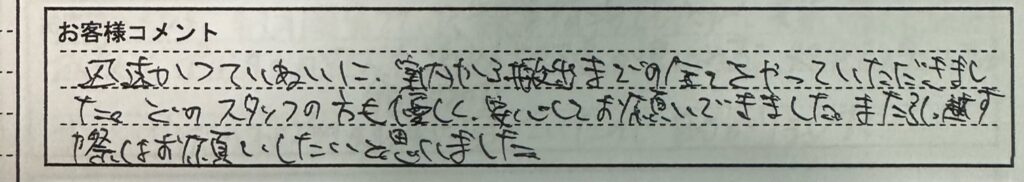 お客様コメント
迅速かつていねいに、室内から搬出までの全てをやっていただきまし
た。どのスタッフの方も優しく、安心してお願いできました。また引っ越す
際はお願いしたいと思いました。